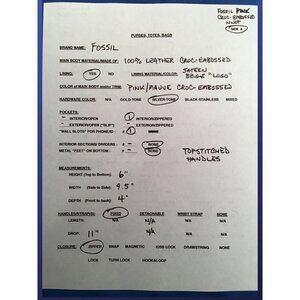 FOSSIL PINK
CROC-EMBOSSED
SIDE A
PURSES, TOTES, BAGS
BRAND NAME: FOSSIL
MAIN BODY MATERIAL/MADE OF: 100% LEATHER CROC-EMBOSSED
LINING: YES NO LINING MATERIAL/COLOR: SATEEN
BEIGE "LOGO"
COLOR of MAIN BODY and/or TRIM: PINK/MAUVE CROC-EMBOSSED
HARDWARE COLOR: N/A GOLD-TONE SILVER-TONE BLACK STAINLESS MIXED
POCKETS:
INTERIOR/OPEN 1 INTERIOR/ZIPPERED
EXTERIOR/OPEN ("SLIP") EXTERIOR/ZIPPERED
"WALL SLOTS" FOR PHONE/ID: 1 NONE
INTERIOR SECTIONS/DIVIDERS: # - NONE
METAL "FEET" ON BOTTOM: # - NONE TOPSTITCHED
HANDLES
MEASUREMENTS:
HEIGHT (Top to Bottom): 6"
WIDTH (Side to Side): 9.5"
DEPTH (Front to back): 4"
HANDLES/STRAP(S): FIXED DETACHABLE WRIST STRAP NONE
LENGTH: N/A N/A N/A
DROP: 11" N/A
CLOSURE: ZIPPER SNAP MAGNETIC KISS LOCK DRAWSTRING NONE
LOCK TURN LOCK HOOK&LOOP